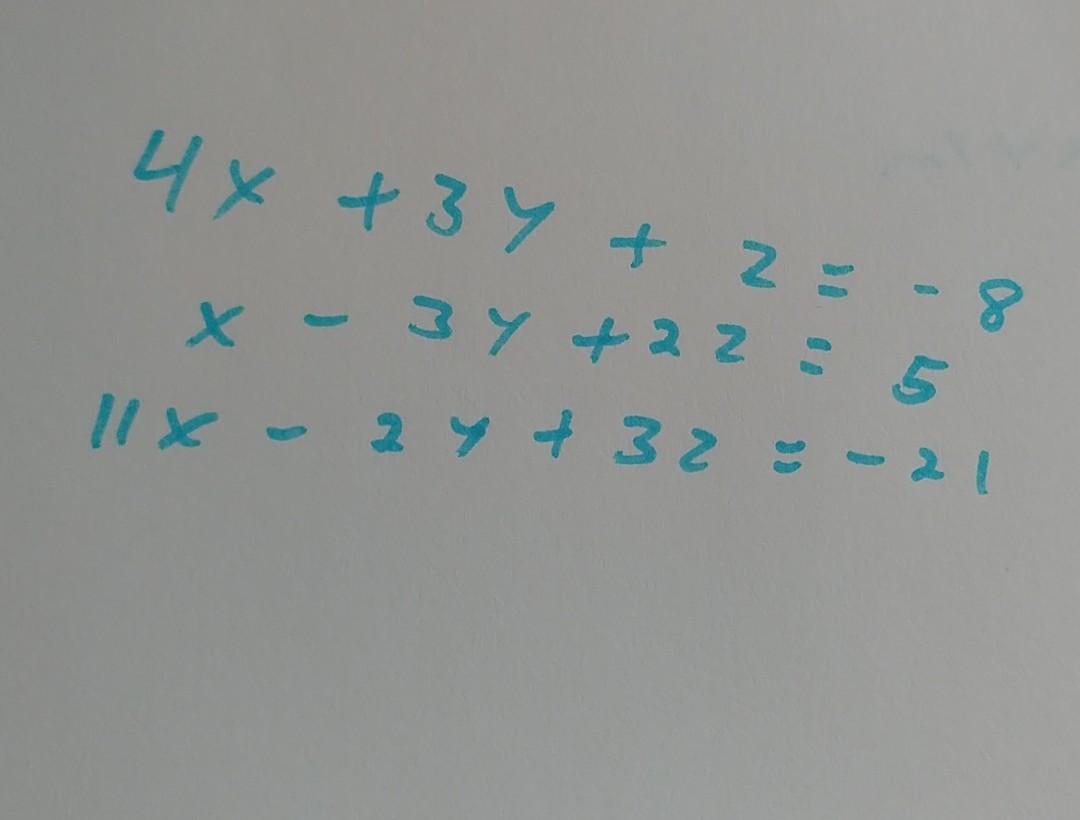 4x + 3y + z = - 8
x - 3y + 2z = 5
11x - 2y + 3z = - 21